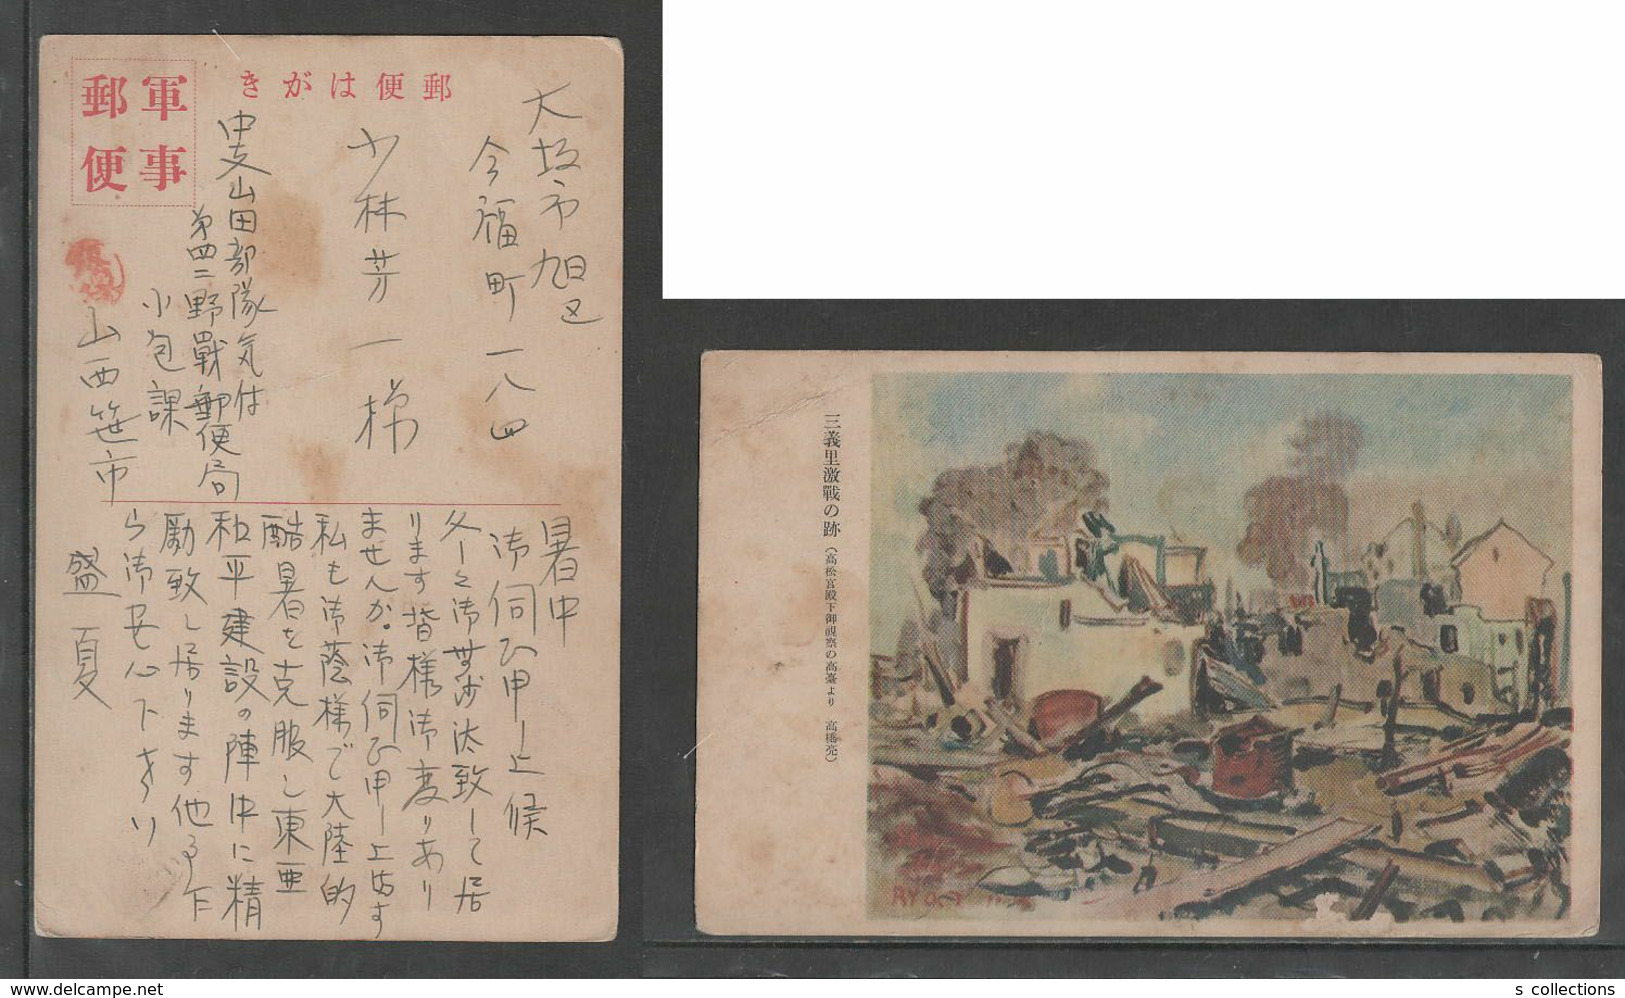 郵便はがき
軍事
郵便
大坂市旭区
今福町一八四
小林芳一様
中支山田部隊気付
第四二野戰郵便局
小包課
山西笹市
暑中
御伺ひ申し上候
久しく御無沙汰致して居
ります皆様御変りあり
ませんか御伺ひ申し上げます
私も御蔭様で大陸的
酷暑を克服し東亜
和平建設の陣中に精
励致し居ります他事下
ら御安心下さい
盛夏
三義里激戰の跡(高松宮殿下御視察の高臺より 高橋亮)
RYO
delcampe.net
s collections